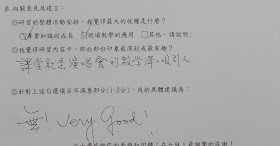 參.相關意見及建言:
◎研習的整體活動安排,我覺得最大的收穫是什麼?
☑專業知識的成長 ☑現場教學的應用 □其他,請說明:
◎我覺得研習內容中,那些部份印象最深刻或最有趣?
課堂就是演唱會的教學法,吸引人
◎針對上述勾選項目不滿意部分(1-2分),我的具體建議為:
無! Very Good!